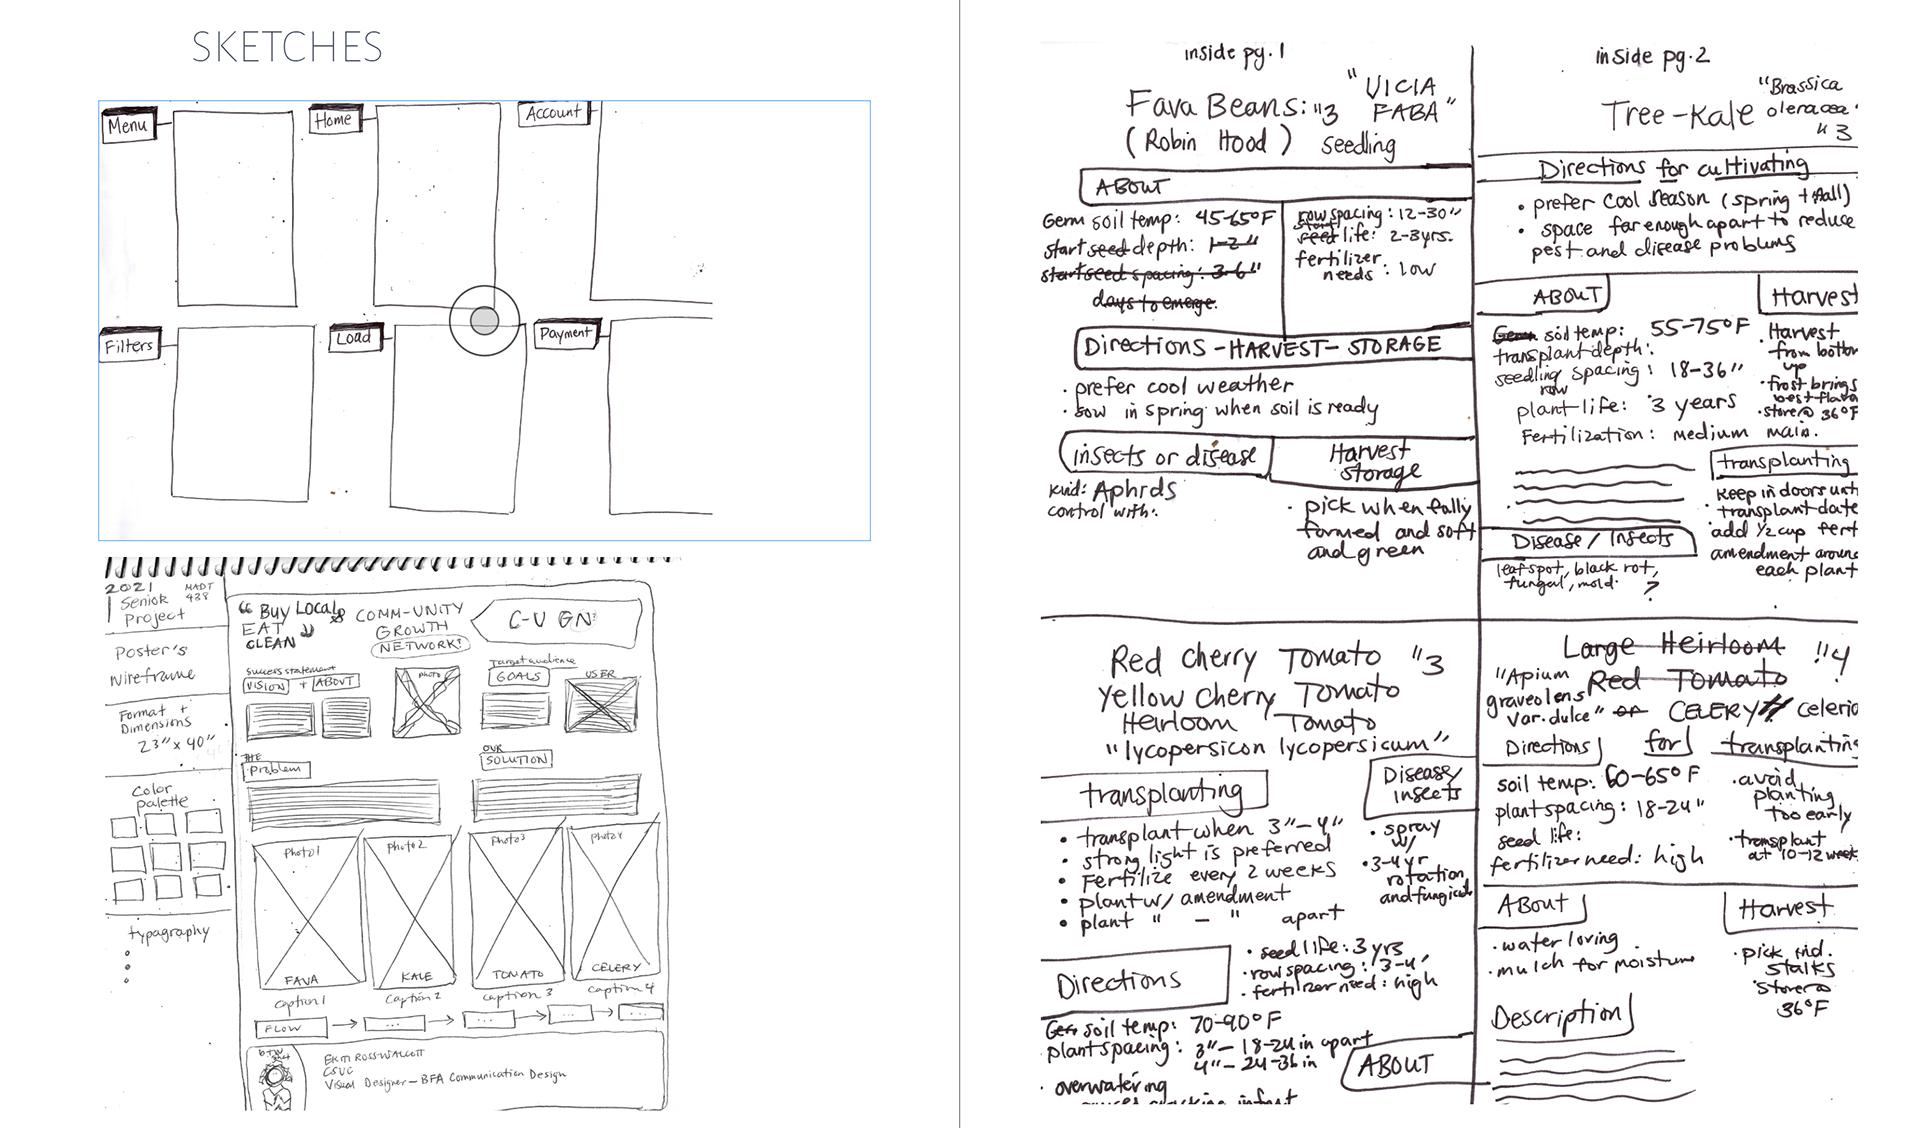 SKETCHES
Menu
Home
Account
Filters
Load
Payment
2021 MADT
Senior 438
Project
Poster's
Wireframe
Format +
Dimensions
23" x 40"
Color
palette
typography
"Buy Local
EAT
CLEAN"
COMM-UNITY
GROWTH
NETWORK?
C-U GN?
Success statement
VISION + ABOUT
Photo
Target audience
GOALS
USER
THE
Problem
OUR
SOLUTION
Photo1
Photo2
Photo3
Photo4
FAVA
KALE
TOMATO
CELERY
Caption 1
Caption 2
Caption 3
Caption 4
FLOW → ... → ... → ... → ...
CSUC
Visual Designer - BFA Communication Design
inside pg. 1
Fava Beans: "3 "VICIA FABA"
(Robin Hood) seedling
ABOUT
Germ soil temp: 45-65°F
start seed depth: 1-2"
start seed spacing: 3-6"
days to emerge.
row spacing: 12-30"
seed life: 2-3yrs.
fertilizer
needs: low
Directions - HARVEST - STORAGE
· prefer cool weather
· sow in spring when soil is ready
insects or disease
Harvest
storage
kind: Aphids
control with:
· pick when fully
formed and soft
and green
inside pg. 2
Tree-Kale "Brassica
oleracea"
"3
Directions for cultivating
• prefer cool season (spring + fall)
• space far enough apart to reduce
pest and disease problems
ABOUT
Germ soil temp: 55-75°F
transplant depth:
seedling spacing: 18-36"
row
plant life: 3 years
Fertilization: medium main.
Harvest
· Harvest
from bottom
up
· frost brings
best flava
· store @ 36°F
transplanting
· keep in doors unt
· transplant date
· add 1/2 cup fert
amendment aroun
each plant
Disease / Insects
leaf spot, black rot,
fungal, mold.
?
Red Cherry Tomato "3
Yellow Cherry Tomato
Heirloom Tomato
"lycopersicon lycopersicum"
transplanting
• transplant when 3"-4"
• strong light is preferred
• Fertilize every 2 weeks
• plant w/ amendment
• plant " - " apart
Disease/
insects
• spray
w/
• 3-4 yr
rotation
and fungicid
Directions
• seed life: 3 yrs
• row spacing: 3-4'
• fertilizer need: high
Germ soil temp: 70-90°F
plant spacing: 3" - 18-24 in apart
4" - 24-36 in
ABOUT
· overwatering
Large Heirloom "4
"Apium Red Tomato
graveolens
var. dulce" or CELERY celeria
Directions for transplanting
soil temp: 60-65°F
plant spacing: 18-24"
seed life:
fertilizer need: high
· avoid
planting
too early
· transplant
at 10-12 week
ABout
· water loving
· mulch for moisture
Harvest
· pick ind.
stalks
· store @
36°F
Description